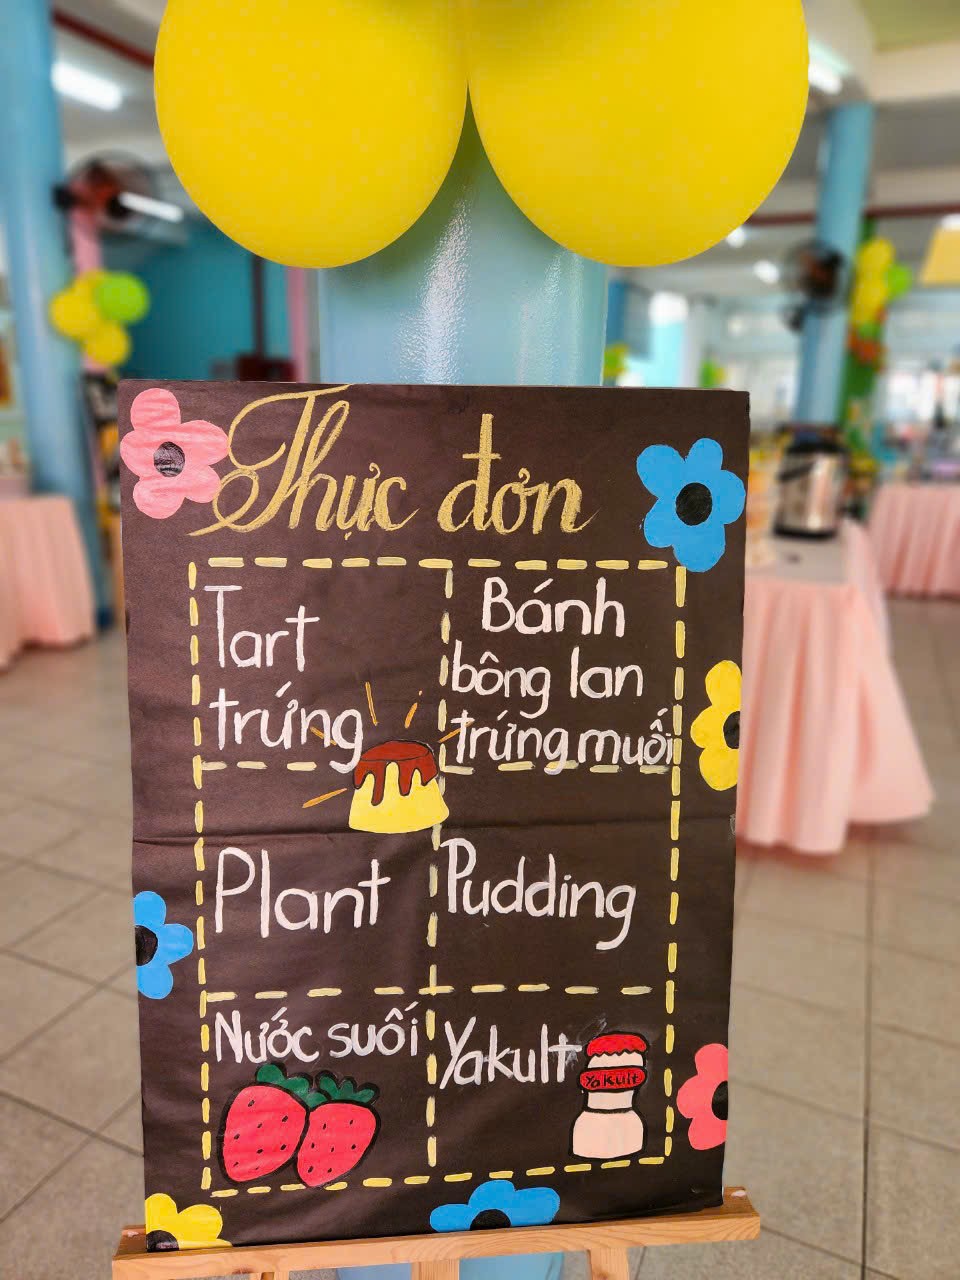 Thực đơn
Tart
trứng
Bánh
bông lan
trứng muối
Plant
Pudding
Nước suối
Yakult
Yakult